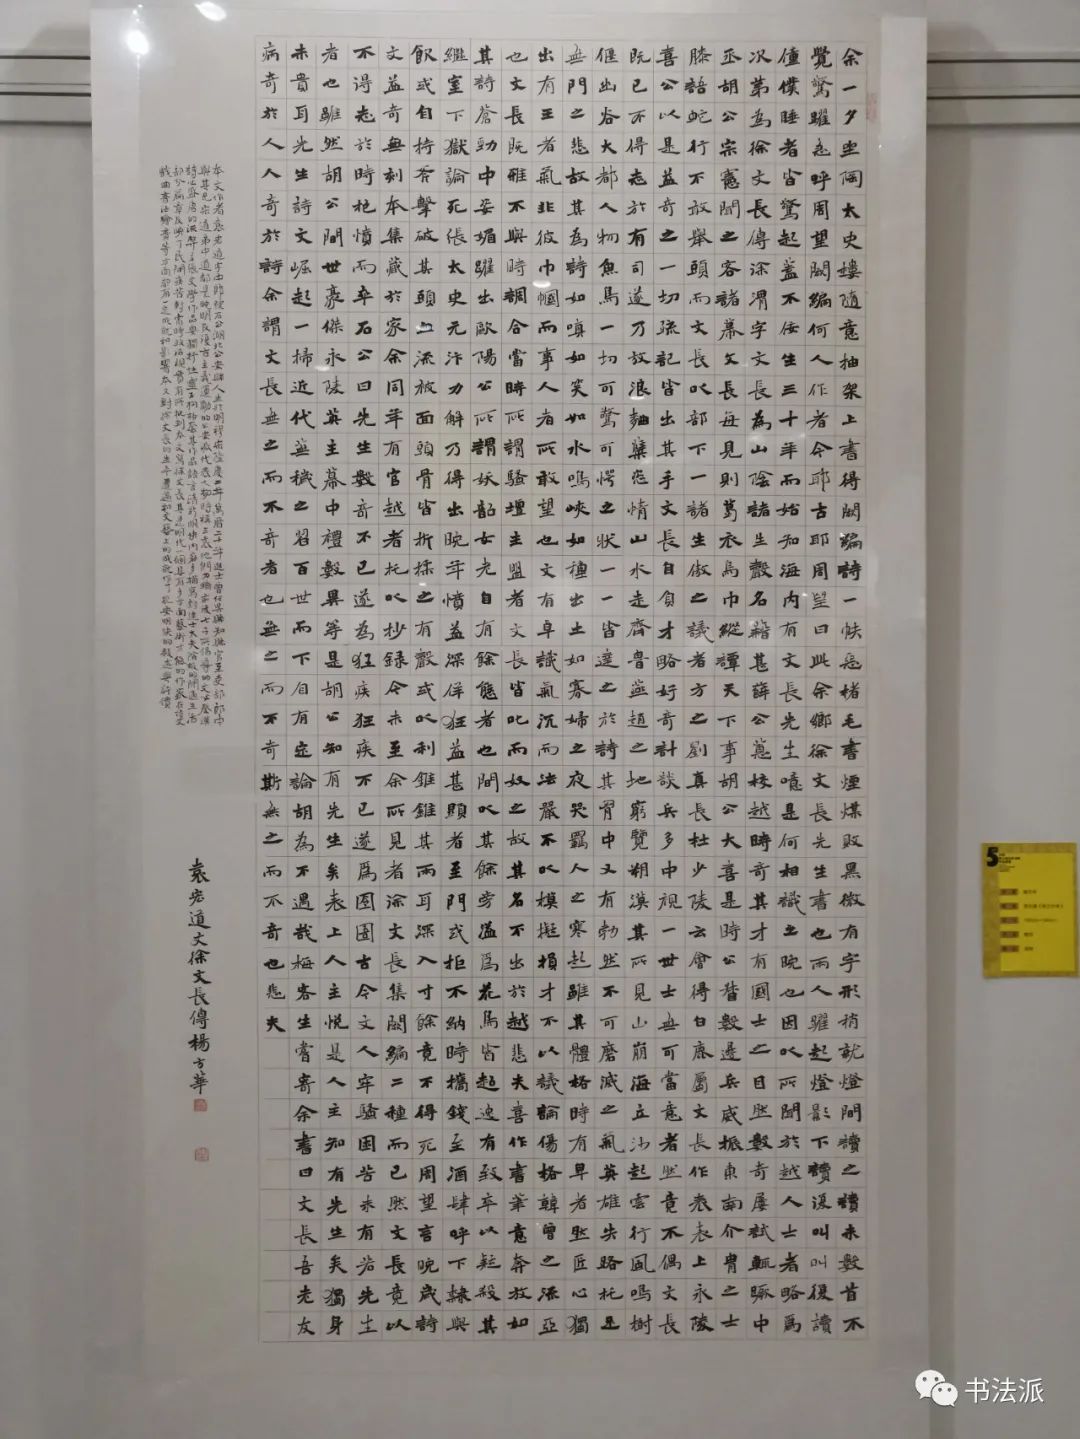 余一夕坐陶太史樓隨意抽架上書得闕編詩一帙惡楮毛書煙煤敗黑微有字形稍就燈間讀之讀未數首不
覺驚躍急呼周望闕編何人作者今耶古耶周望曰此余鄉徐文長先生書也兩人躍起燈影下讀復叫叫復讀
僮僕睡者皆驚起蓋不佞生三十年而始知海內有文長先生噫是何相識之晚也因以所聞於越人士者略爲
次第為徐文長傳徐渭字文長為山陰諸生聲名籍甚薛公蕙校越時奇其才有國士之目然數奇屢試輒蹶中
丞胡公宗憲聞之客諸幕文長每見則葛衣烏巾縱譚天下事胡公大喜是時公督數邊兵威振東南介胄之士
膝語蛇行不敢舉頭而文長以部下一諸生傲之議者方之劉真長杜少陵云會得白鹿屬文長作表表上永陵
喜公以是益奇之一切疏記皆出其手文長自負才略好奇計談兵多中視一世士無可當意者然竟不偶文長
既已不得志於有司遂乃放浪麯糵恣情山水走齊魯燕趙之地窮覽朔漠其所見山崩海立沙起雲行風鳴樹
偃出谷大都人物魚馬一切可驚可愕之狀一一皆達之於詩其胷中又有勃然不可磨滅之氣英雄失路托足
無門之悲故其為詩如嗔如笑如水鳴峽如種出土如寡婦之夜哭羈人之寒起雖其體格時有卑者然匠心獨
出有王者氣非彼巾幗而事人者所敢望也文有卓識氣沉而法嚴不以模擬損才不以議論傷格韓曾之流亞
也文長既雅不與時調合當時所謂騷壇主盟者文長皆叱而奴之故其名不出於越悲夫喜作書筆意奔放如
其詩蒼勁中姿媚躍出歐陽公所謂妖韶女老自有餘態者也間以其餘旁溢爲花鳥皆超逸有致卒以疑殺其
繼室下獄論死張太史元汴力解乃得出晚年憤益深佯狂益甚顯者至門或拒不納時攜錢至酒肆呼下隸與
飲或自持斧擊破其頭血流被面頭骨皆折揉之有聲或以利錐錐其兩耳深入寸餘竟不得死周望言晚歲詩
文益奇無刻本集藏於家余同年有官越者托以抄錄今未至余所見者徐文長集闕編二種而已然文長竟以
不得志於時抱憤而卒石公曰先生數奇不已遂為狂疾狂疾不已遂爲囹圄古今文人牢騷困苦未有若先生
者也雖然胡公間世豪傑永陵英主幕中禮數異等是胡公知有先生矣表上人主悅是人主知有先生矣獨身
未貴耳先生詩文崛起一掃近代蕪穢之習百世而下自有定論胡為不遇哉梅客生嘗寄余書曰文長吾老友
病奇於人人奇於詩余謂文長無之而不奇者也無之而不奇斯無之而不奇也悲夫
袁宏道文徐文長傳楊方華
书法派